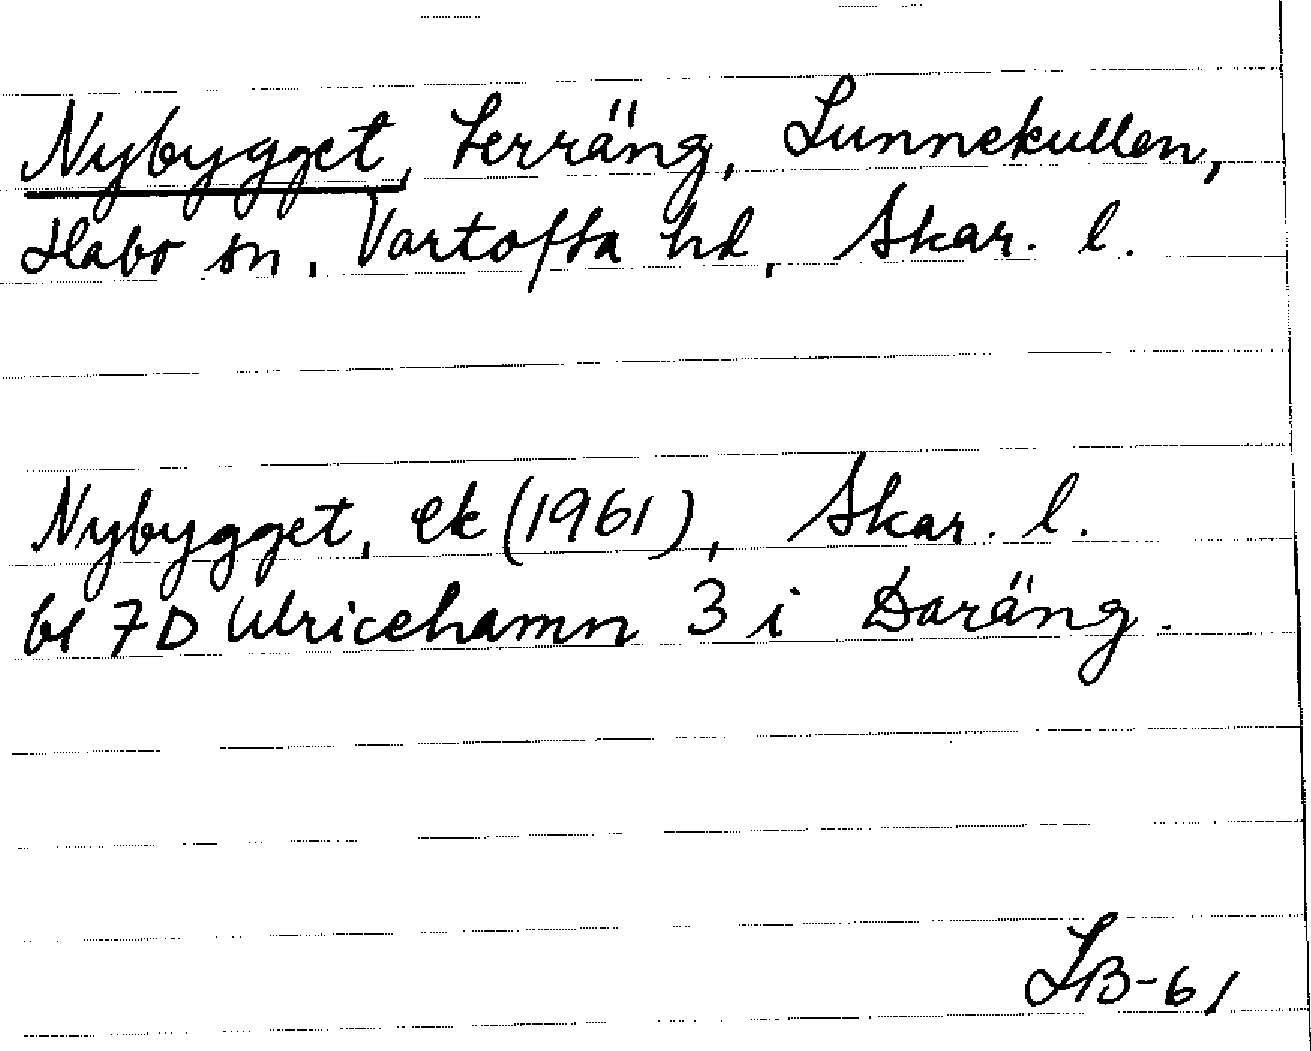 Nybygget, terräng, Lunnekullen,
Habo sn, Vartofta hd, Skar. l.
Nybygget, ek (1961), Skar. l.
bl 7D Ulricehamn 3 i Daräng.
LB-61